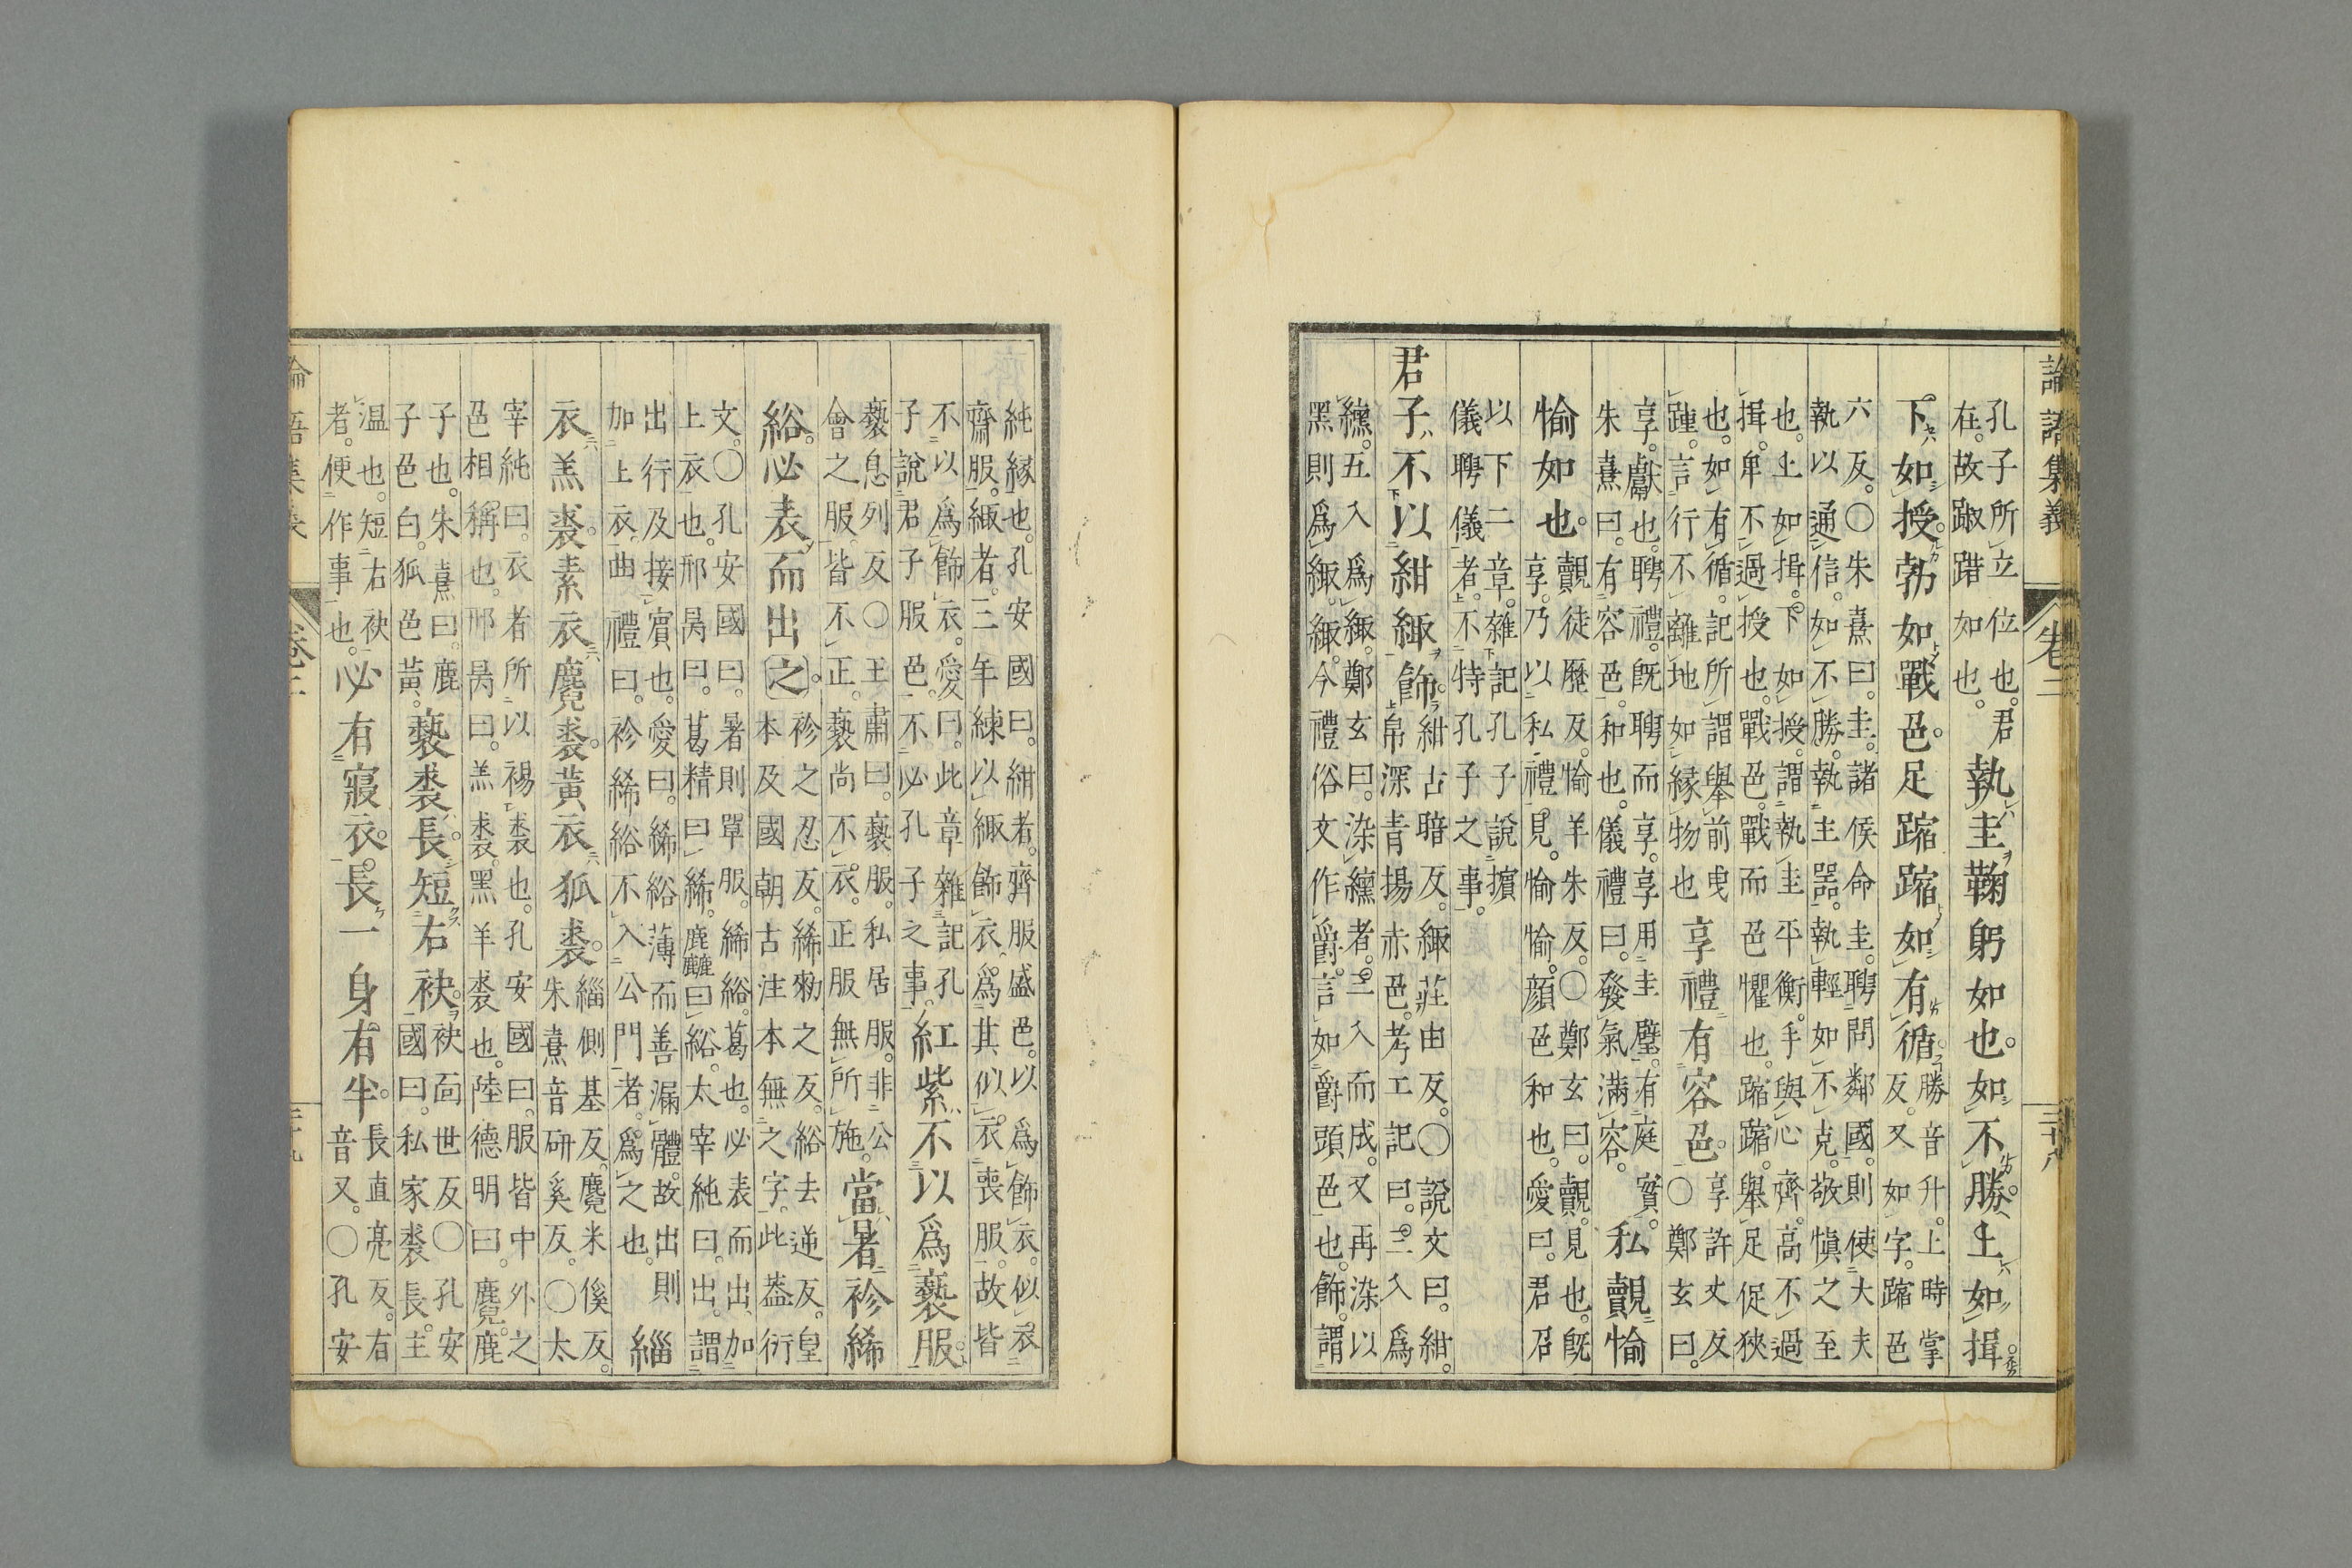 論語集義
卷二
三十八
孔子所立位也。君
在。故踧踖如也。
執圭鞠躬如也。如不勝上如揖
下如授。勃如戰色。足蹜蹜如有循。
勝音升。上時掌
反。又如字。蹜色
六反。○朱熹曰。圭。諸侯命圭。聘問鄰國。則使大夫
執以通信。如不勝。執主器。執輕如不克。敬愼之至
也。上如揖。下如授。謂執圭平衡。手與心齊。高不過
揖。卑不過授也。戰色。戰而色懼也。蹜蹜。舉足促狹
也。如有循。記所謂舉前曳
踵。言行不離地如緣物也
享禮有容色。
享許丈反
○鄭玄曰。
享。獻也。聘禮。既聘而享。享用圭璧。有庭實。
朱熹曰。有容色。和也。儀禮曰。發氣滿容。
私覿愉
愉如也。
覿徒歷反。愉羊朱反。○鄭玄曰。覿。見也。既
享。乃以私禮見。愉愉。顔色和也。愛曰。君召
以下二章。雜記孔子說擯
儀聘儀者。不特孔子之事。
君子不以紺緅飾。
紺古暗反。緅莊由反。○說文曰。紺。
帛深青揚赤色。考工記曰。三入爲
纁。五入爲緅。鄭玄曰。染纁者。三入而成。又再染以
黑則爲緅。緅。今禮俗文作爵。言如爵頭色也。飾。謂
純緣也。孔安國曰。紺者。齊服盛色。以爲飾衣。似衣
齋服。緅者。三年練以緅飾衣。爲其似衣喪服。故皆
不以爲飾衣。愛曰。此章雜記孔
子說君子服色。不必孔子之事。
紅紫不以爲褻服。
褻息列反○王肅曰。褻服。私居服。非公
會之服。皆不正。褻尚不衣。正服無所施。
當暑袗絺
綌。必表而出之。
袗之忍反。絺勑之反。綌去逆反。皇
本及國朝古注本無之字。此葢衍
文。○孔安國曰。暑則單服。絺綌。葛也。必表而出。加
上衣也。邢昺曰。葛精曰絺。麤曰綌。太宰純曰。出。謂
出行及接賓也。愛曰。絺綌薄而善漏體。故出則
加上衣。曲禮曰。袗絺綌不入公門者。爲之也。
緇
衣羔裘。素衣麑裘。黃衣狐裘。
緇側基反。麑米傒反。
朱熹音研奚反。○太
宰純曰。衣者所以裼裘也。孔安國曰。服皆中外之
色相稱也。邢昺曰。羔裘。黑羊裘也。陸德明曰。麑。鹿
子也。朱熹曰。鹿
子色白。狐色黃。
褻裘長。短右袂。
袂面世反○孔安
國曰。私家裘長。主
温也。短右袂
者。便作事也。
必有寢衣。長一身有半。
長直亮反。右
音又。○孔安
卷二
三十九